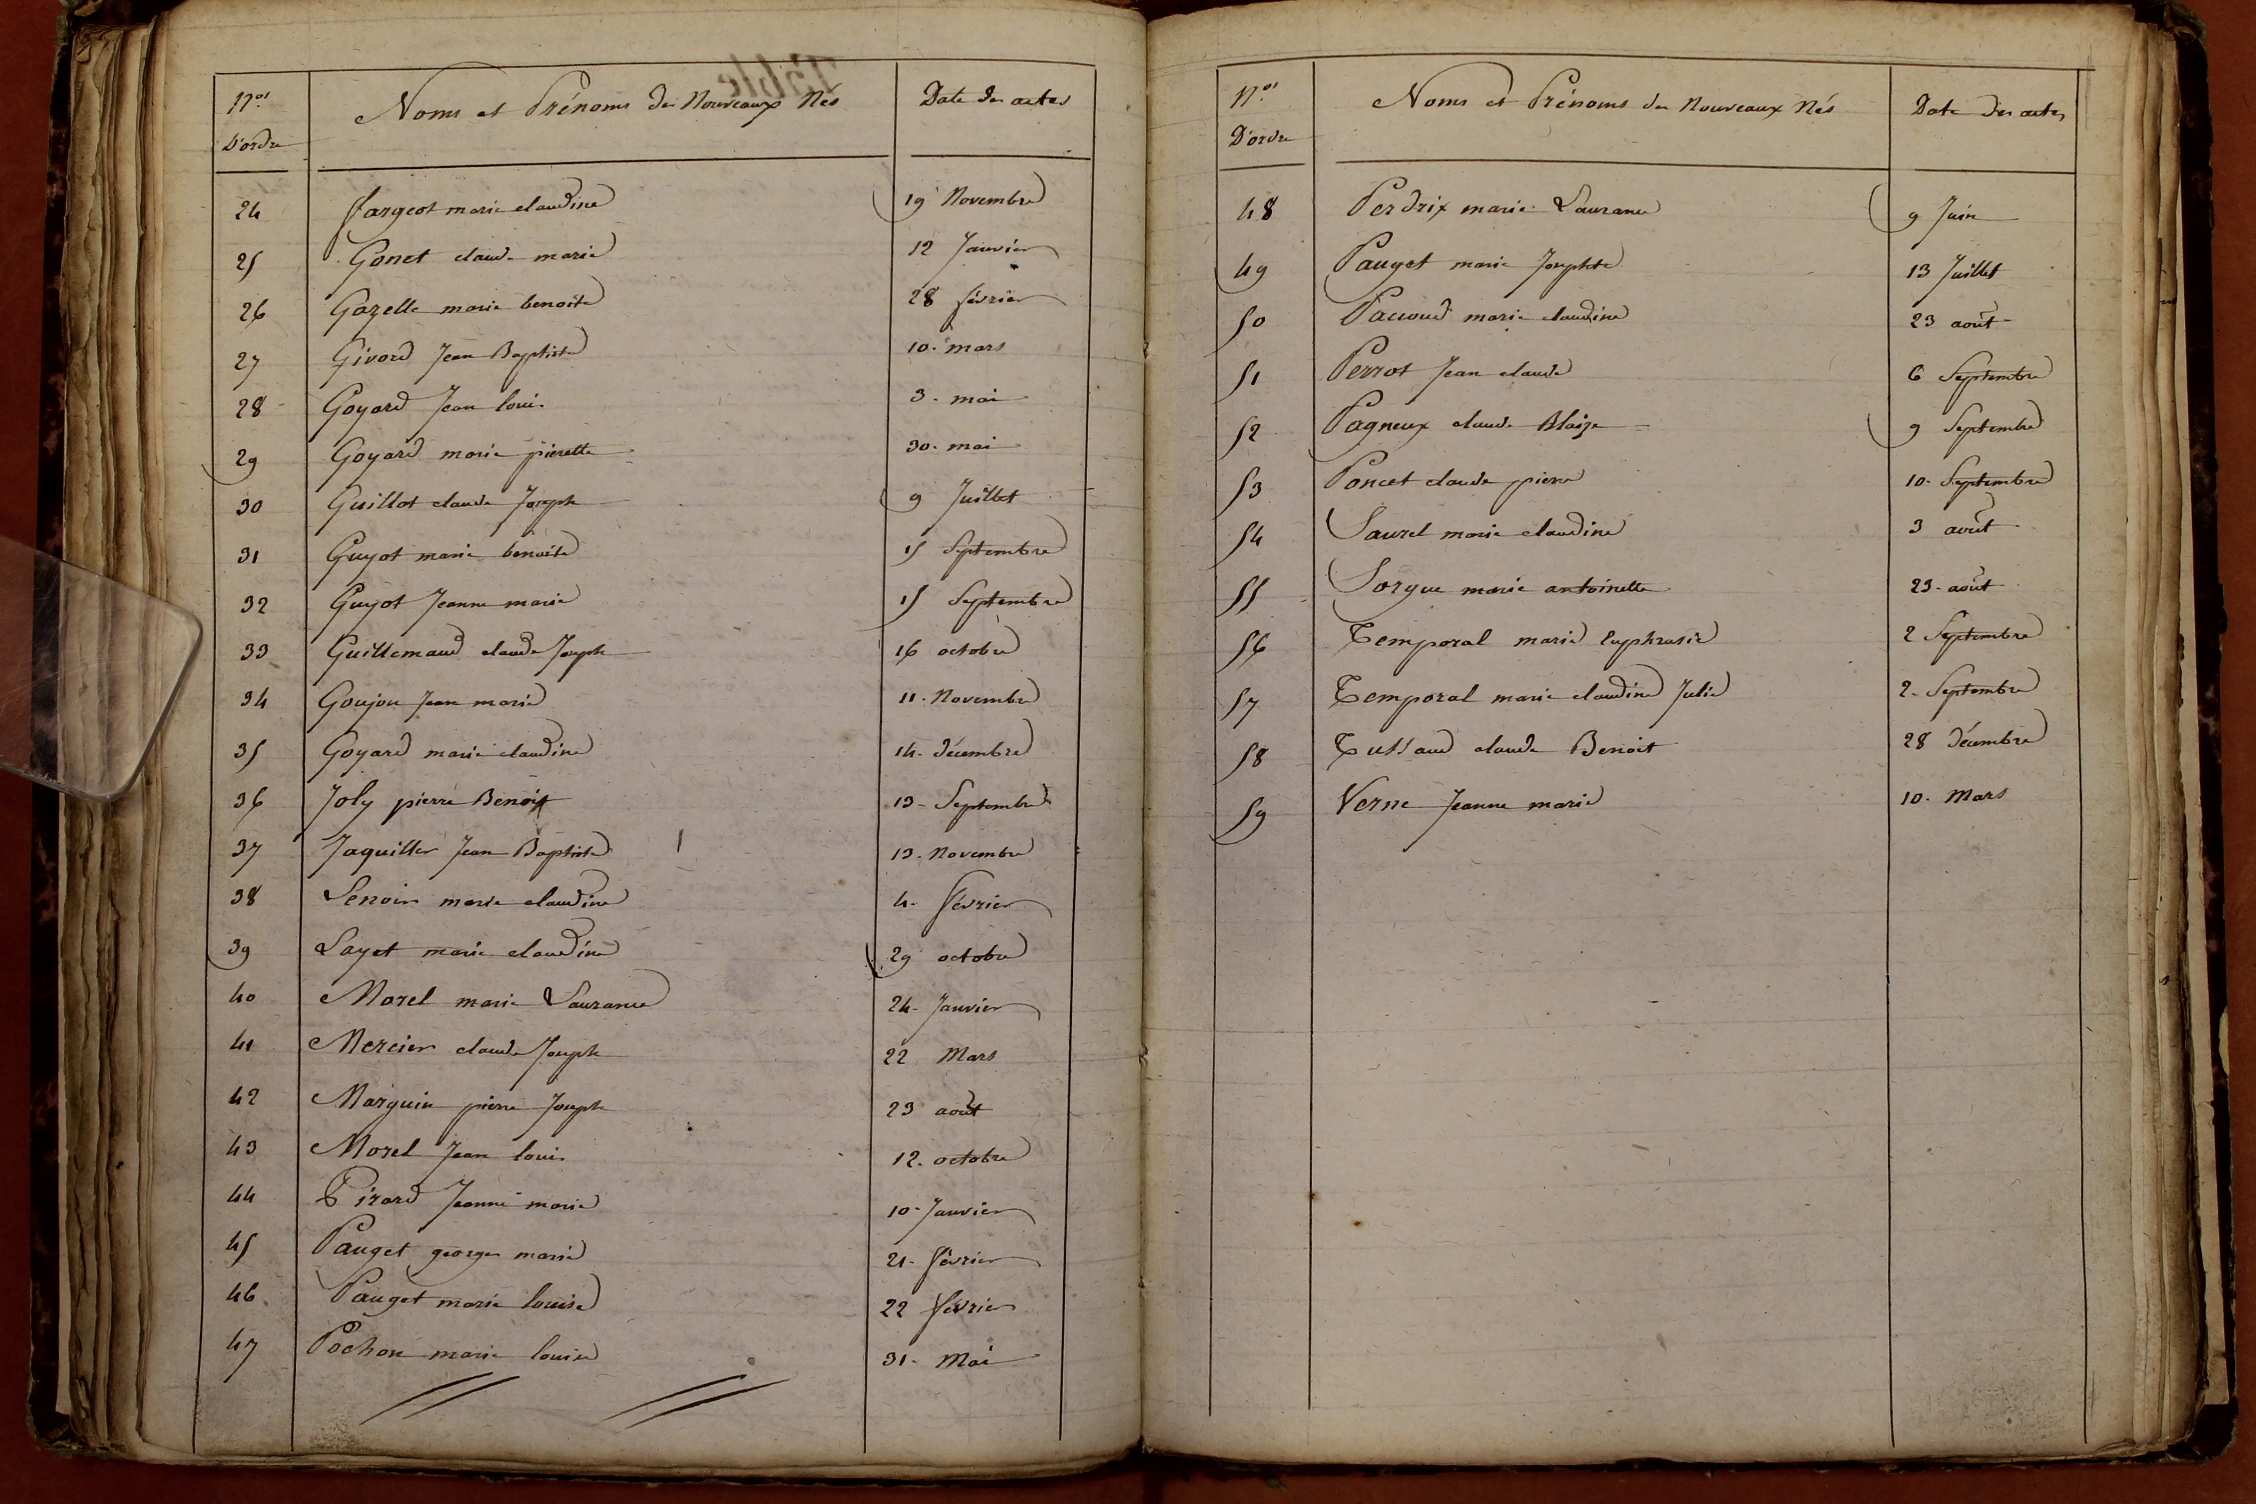 Nos D'ordre Noms et Prénoms des Nouveaux Nés Date des actes
24 fargeot marie claudine 19 Novembre
25 Gonet claude marie 12 Janvier
26 Gazelle marie benoite 28 février
27 Givord Jean Baptiste 10. mars
28 Goyard Jean louis 3. mai
29 Goyard marie pierette 30. mai
30 Guillot claude Joseph 9 Juillet
31 Guyot marie benoite 15 Septembre
32 Guyot Jeanne marie 15 Septembre
33 Guillemaud claude Joseph 16 octobre
34 Goujon Jean marie 11. Novembre
35 Goyard marie claudine 14. décembre
36 Joly pierre Benoit 13 - Septembre
37 Jaquiller Jean Baptiste 13. Novembre
38 Lenoir marie claudine 4. février
39 Layet marie claudine 29 octobre
40 Morel marie Laurance 24 - Janvier
41 Mercier claude Joseph 22 Mars
42 Marguin pierre Joseph 23 août
43 Morel Jean louis 12. octobre
44 Pirard Jeanne marie 10 - Janvier
45 Pauget george marie 21 - février
46 Pauget marie louise 22 février
47 Pochon marie louise 31 - Mai
Nos D'ordre Noms et Prénoms des Nouveaux Nés Date des actes
48 Perdrix marie Laurance 9 Juin
49 Pauget marie Josephte 13 Juillet
50 Paccoud marie claudine 23 août
51 Perrot Jean claude 6 Septembre
52 Pagneux claude Blaize 9 Septembre
53 Poncet claude pierre 10 - Septembre
54 Saurel marie claudine 3 août
55 Sorgue marie antoinette 23 - août
56 Temporal marie Euphrasie 2 Septembre
57 Temporal marie claudine Julie 2 - Septembre
58 Tussaud claude Benoit 28 décembre
59 Verne Jeanne marie 10 - Mars